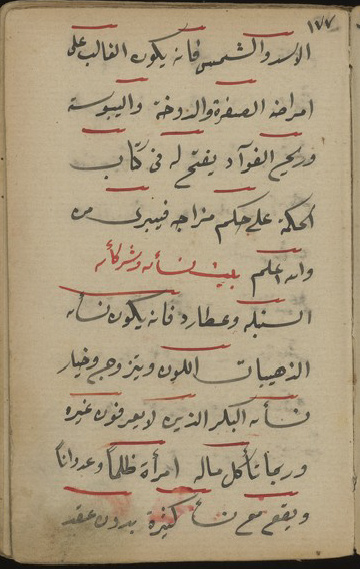 ١٧٧
الاسد والشمس فانه يكون الغالب على
امراضه الصفرة والدوخة واليبوسة
وريح الفوآد يفتح له فى كتاب
الحكمة على حكم مزاجه فيبرى من
والله اعلم بيت نسائه وشركائه
السنبله وعطارد فانه يكون نسائه
الذهبيات اللون ويتزوج وخيار
نسائه البكر الذين لا يعرفون غيره
وربما تأكل ماله امرأة ظلماً وعدواناً
ويقع مع نسا كثيرة بدون عقد